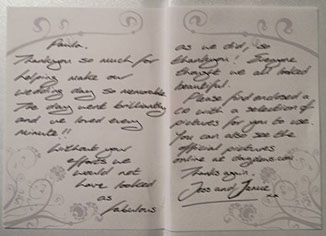 Paula.
Thankyou so much for
helping make our
wedding day so memorable.
The day went brilliantly
and we loved every
minute!!
Without your
efforts we
would not
have looked
as
fabulous
as we did, so
thankyou! Everyone
thought we all looked
beautiful.
Please find enclosed a
CD with a selection of
pictures for you to use.
You can also see the
official pictures
online at
Thanks again.
Jess and
xx